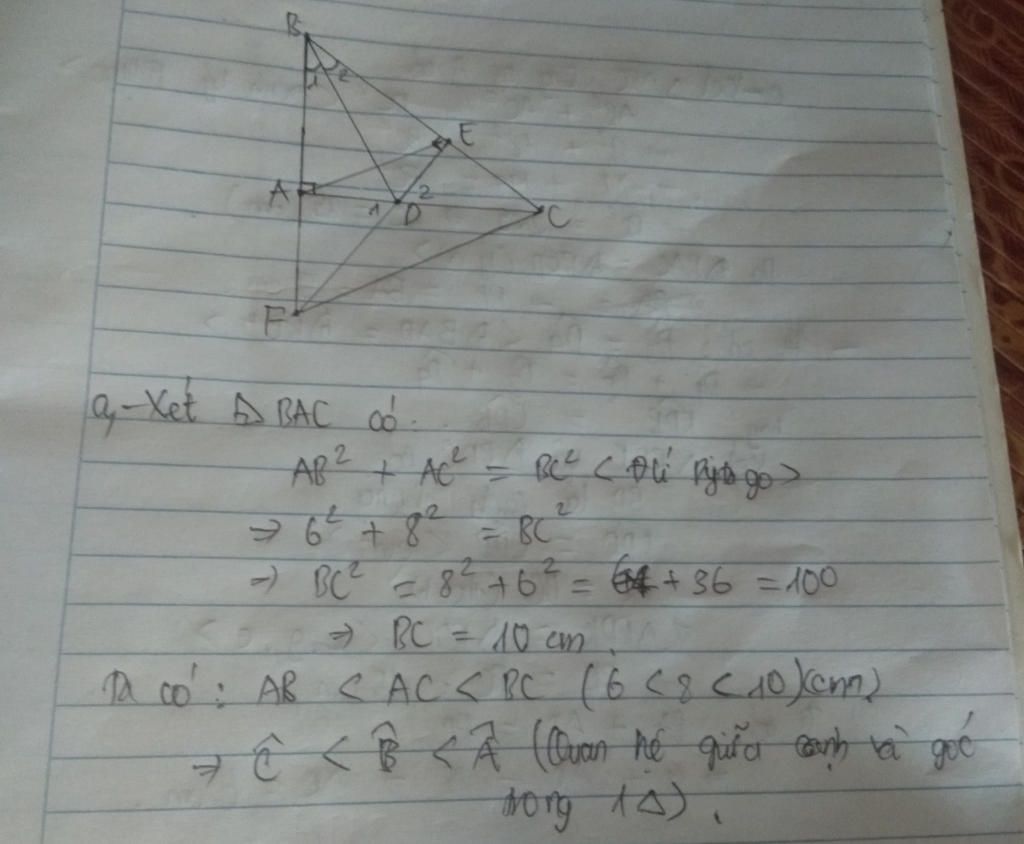 B
1 2
E
A
1 D 2
C
F
a, - Xét Δ BAC có:
AB² + AC² = BC² < Đlí Pytago >
⇒ 6² + 8² = BC²
⇒ BC² = 8² + 6² = 64 + 36 = 100
⇒ BC = 10 cm.
Ta có: AB < AC < BC (6 < 8 < 10)(cm)
⇒ Ĉ < B̂ < Â (Quan hệ giữa cạnh và góc
trong 1 Δ).